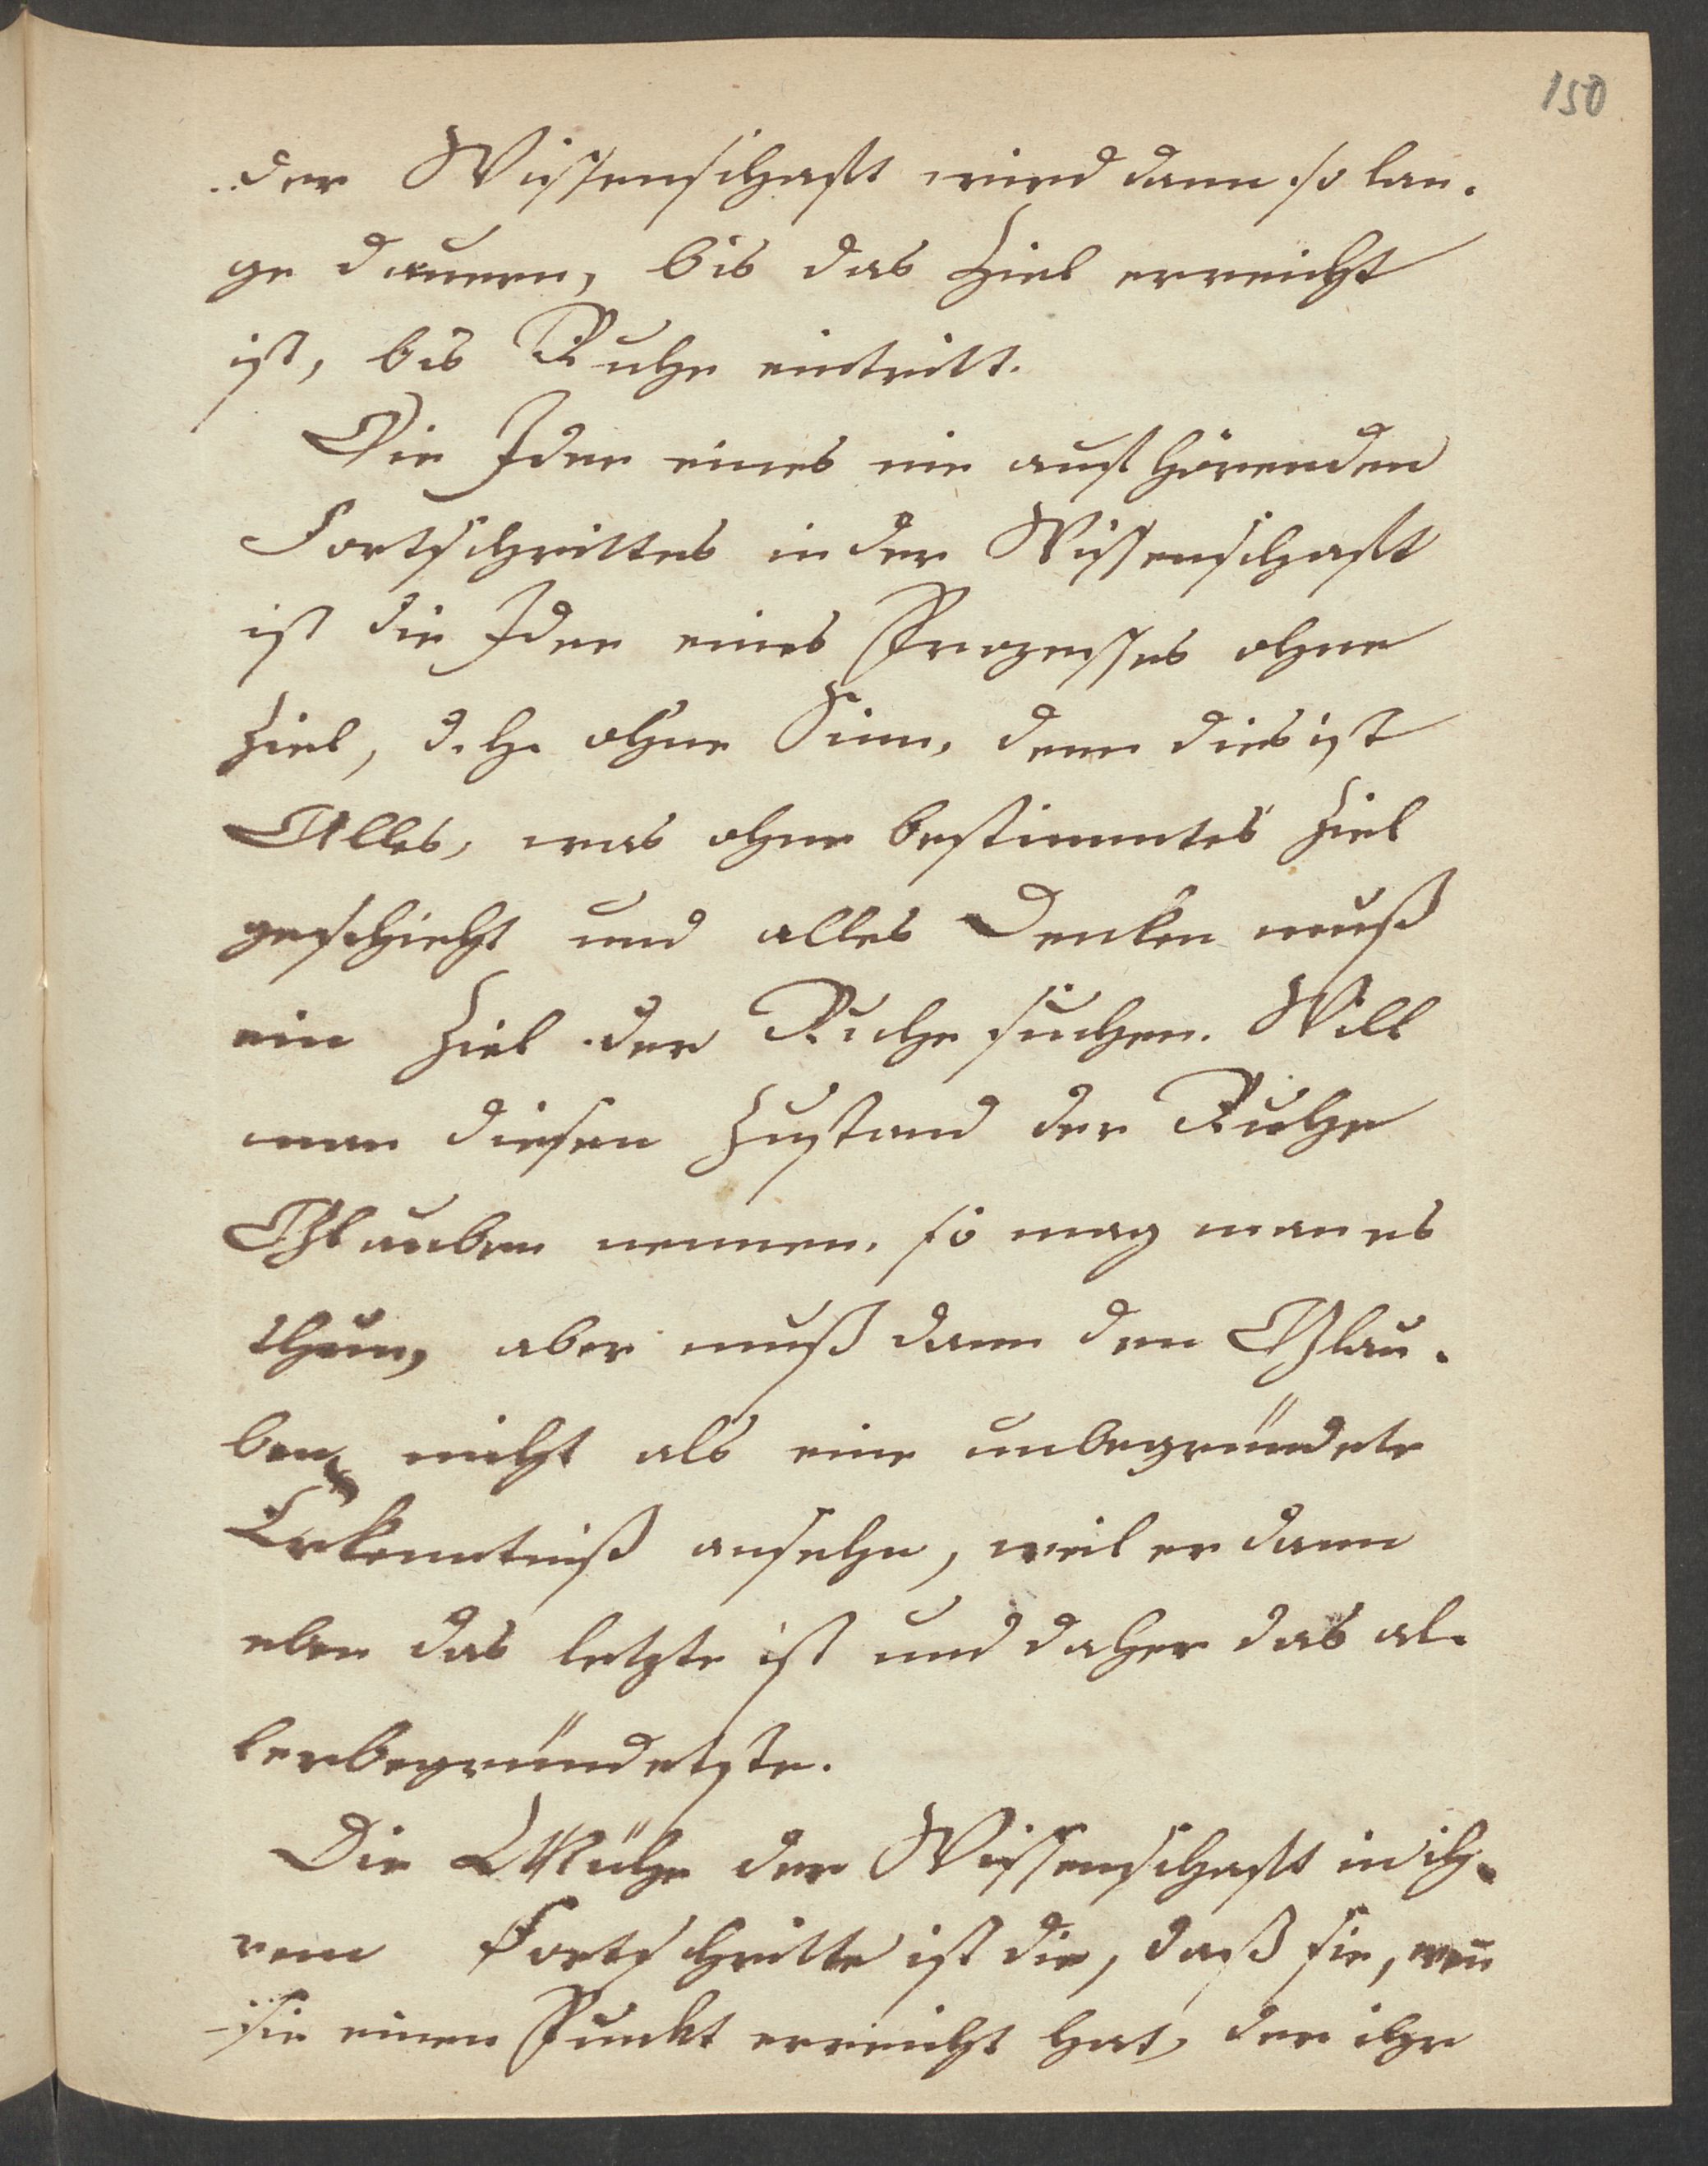 150
der Wissenschaft wird dann so lan-
ge dauern, bis das Ziel erreicht
ist, bis Ruhe eintritt.
Die Idee eines nie aufhörenden
Fortschrittes in der Wissenschaft
ist die Idee eines Prozesses ohne
Ziel, d. h. ohne Sinn, denn dies ist
Alles, was ohne bestimmtes Ziel
geschieht und alles Denken muß
ein Ziel der Ruhe suchen. Will
man diesen Zustand der Ruhe
Glauben nennen, so mag man es
thun, aber muß dann den Glau-
ben nicht als eine unbegründete
Erkenntniß ansehn, weil er dann
eben das letzte ist und daher das al-
lerbegründetste.
Die Mühe der Wissenschaft in ih-
rem Fortschritte ist die, daß sie, wen̄
sie einen Punkt erreicht hat, der ihr